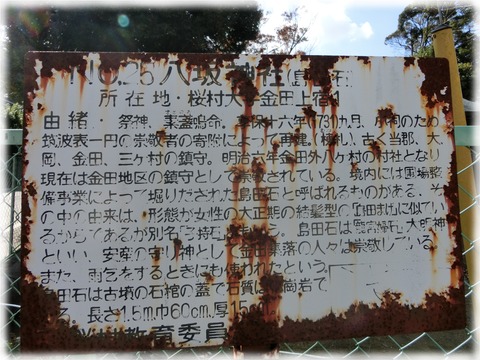 NO.25 八坂神社(島田石)
所在地・桜村大字金田上宿
由緒・祭神、素盞嗚命。享保十六年(1731)九月、小祠のため
筑波表一円の崇敬者の寄際によって再建(棟札)、古く当郡、大
岡、金田、三ヶ村の鎮守。明治六年金田外八ヶ村の村社となり
現在は金田地区の鎮守として崇敬されている。境内には圃場整
備事業によって掘りだされた島田石と呼ばれるものがある。そ
の中の由来は、形態が女性の大正期の結髪型の「島田まげに似てい
るからであるが別名「子持石」ともいう。島田石は 大明神
といい、安産の守り神として金田集落の人々は崇敬している。
また、雨乞をするときにも使われたという。
島田石は古墳の石棺の蓋で石質は 岩で
る。長さ1.5m、巾60cm、厚15
村教育委員